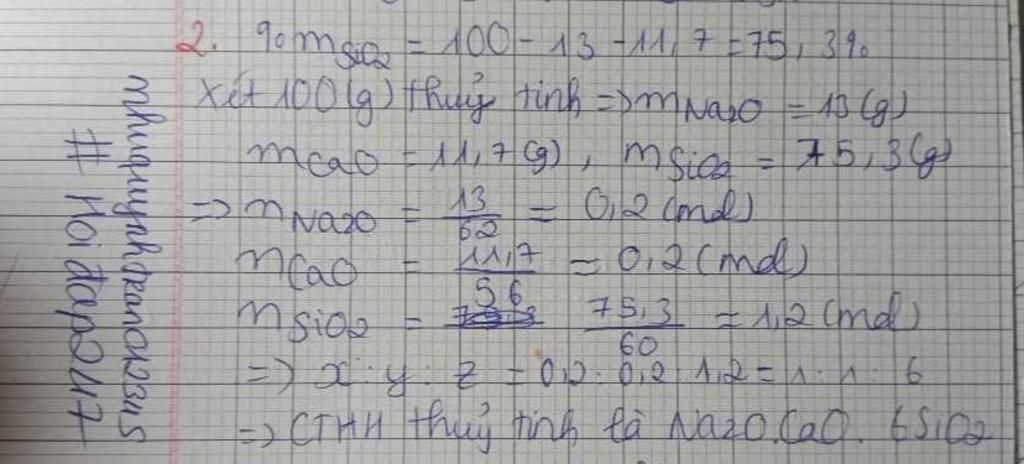 2. %mSiO2 = 100 - 13 - 11,7 = 75,3%
Xét 100(g) thuỷ tinh => mNa2O = 13(g)
mCaO = 11,7(g), mSiO2 = 75,3(g)
=> nNa2O = 13/62 = 0,2 (mol)
nCaO = 11,7/56 = 0,2 (mol)
nSiO2 = 75,3/60 = 1,2 (mol)
=> x : y : z = 0,2 : 0,2 : 1,2 = 1 : 1 : 6
=> CTHH thuỷ tinh là Na2O.CaO.6SiO2
nhuquynhdran012345
# Hoidap247